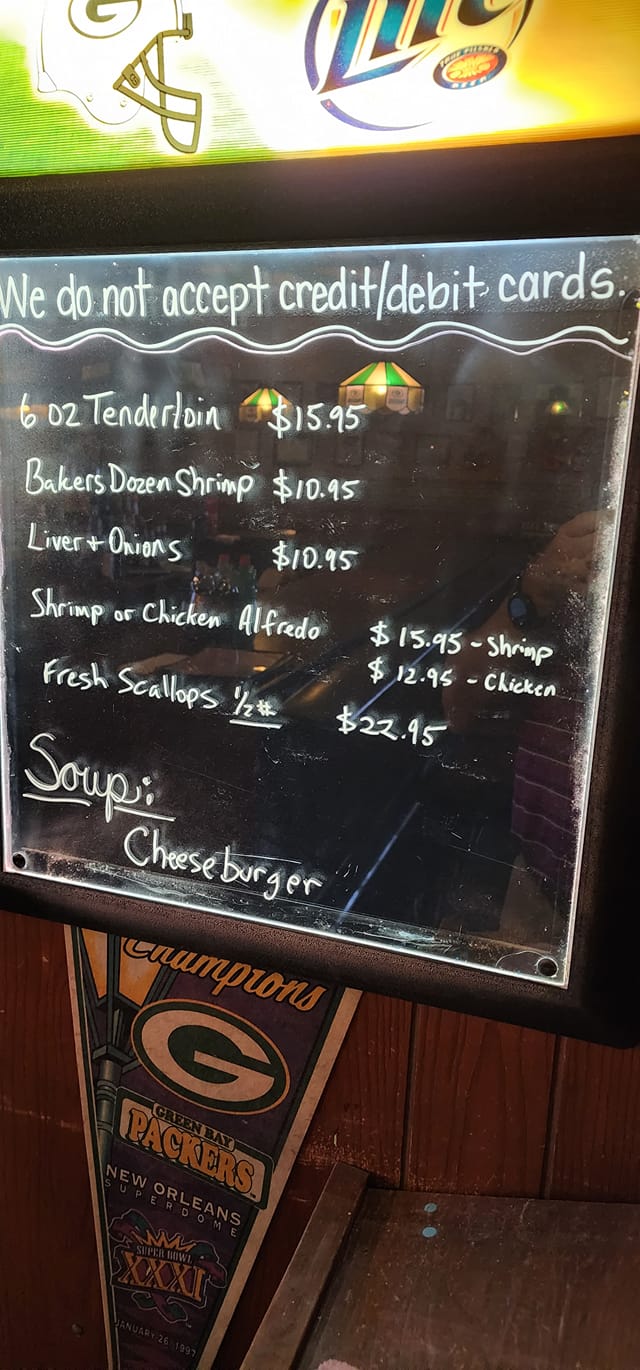 G
Lite
TRUE PILSNER
BEER
We do not accept credit/debit cards.
6 oz Tenderloin $15.95
Bakers Dozen Shrimp $10.95
Liver + Onions $10.95
Shrimp or Chicken Alfredo $15.95 - Shrimp
$12.95 - Chicken
Fresh Scallops 1/2# $22.95
Soup:
Cheeseburger
Champions
G
GREEN BAY
PACKERS
NEW ORLEANS
SUPERDOME
SUPER BOWL
XXXI
JANUARY 26, 1997